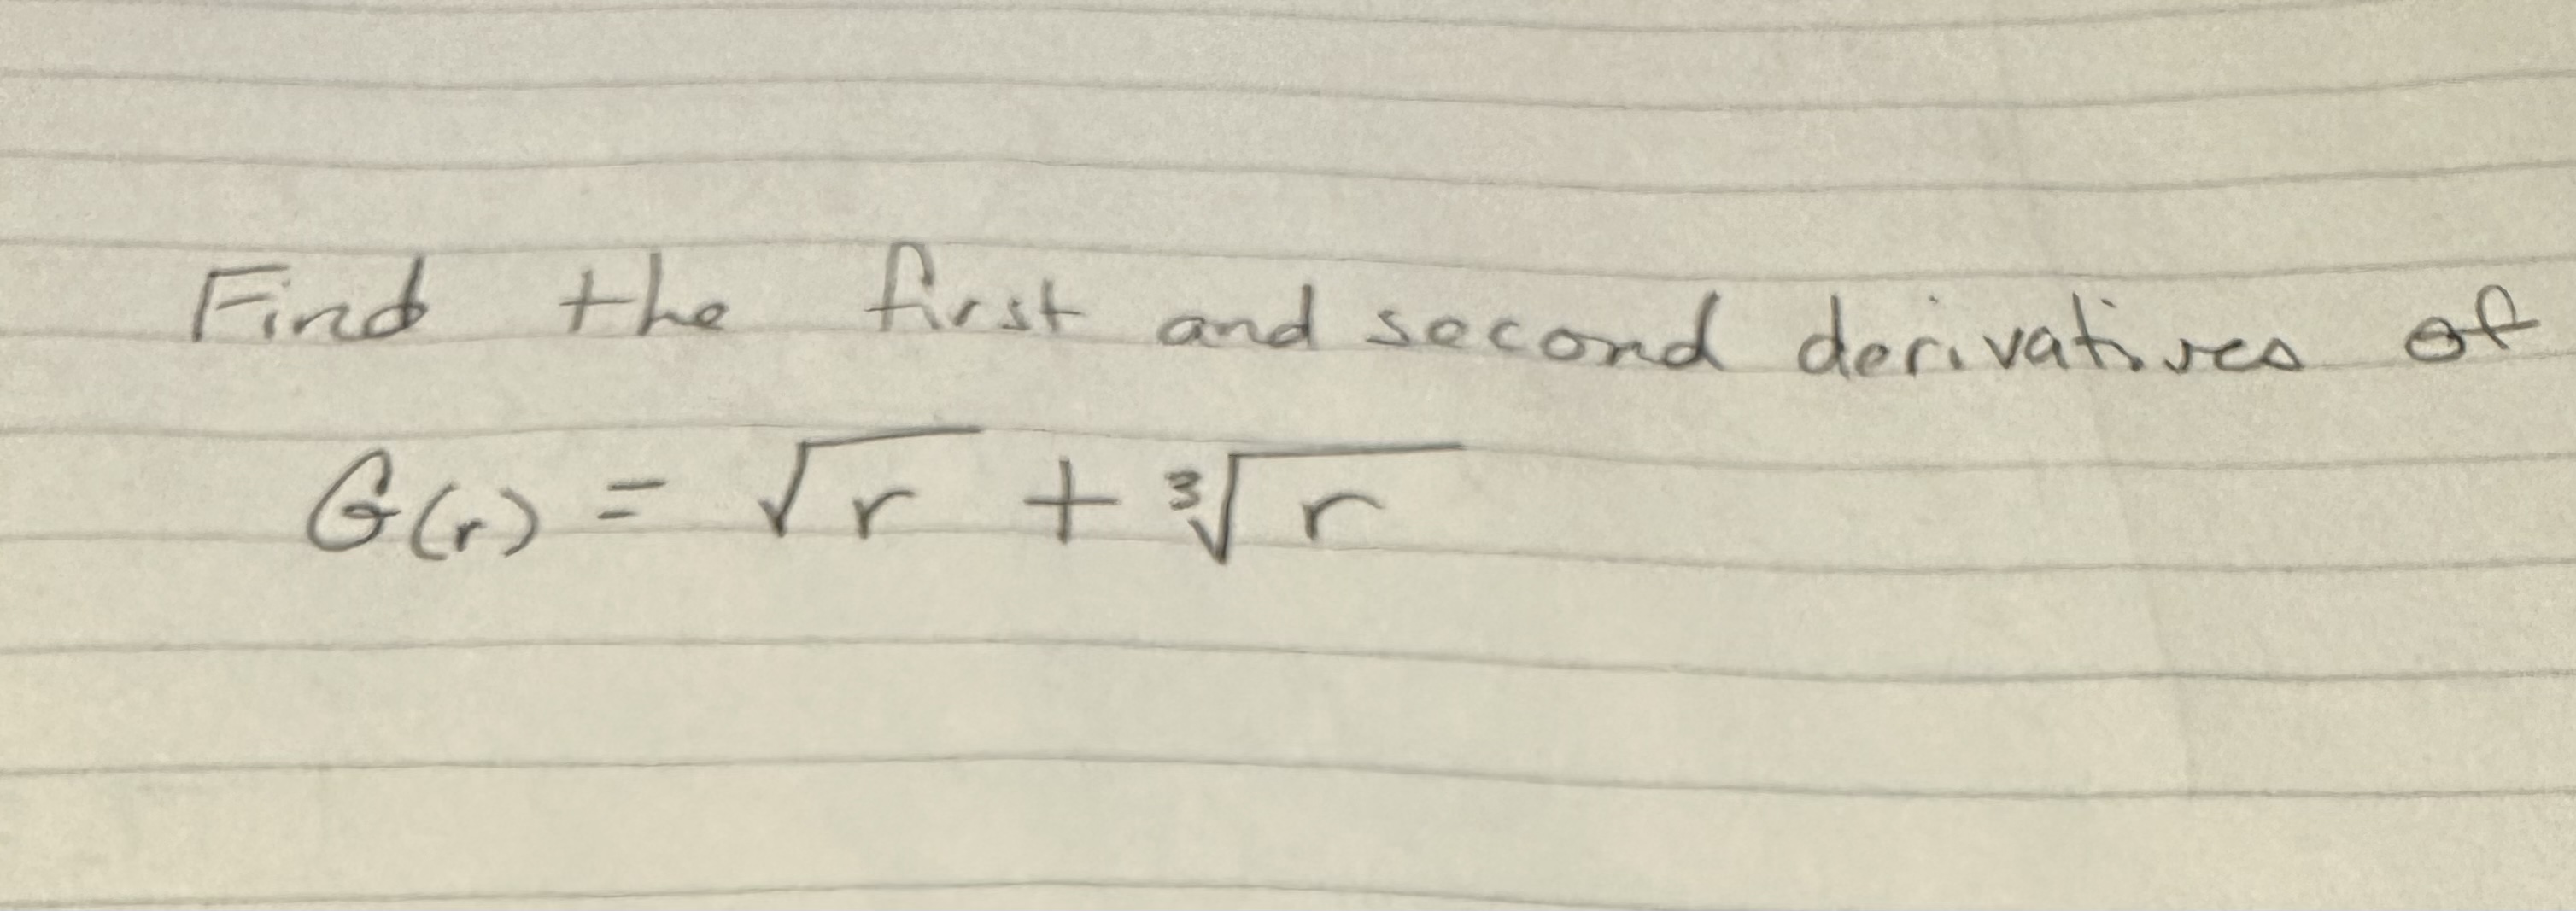 Find the first and second derivatives of
G(r) = √r + ∛r